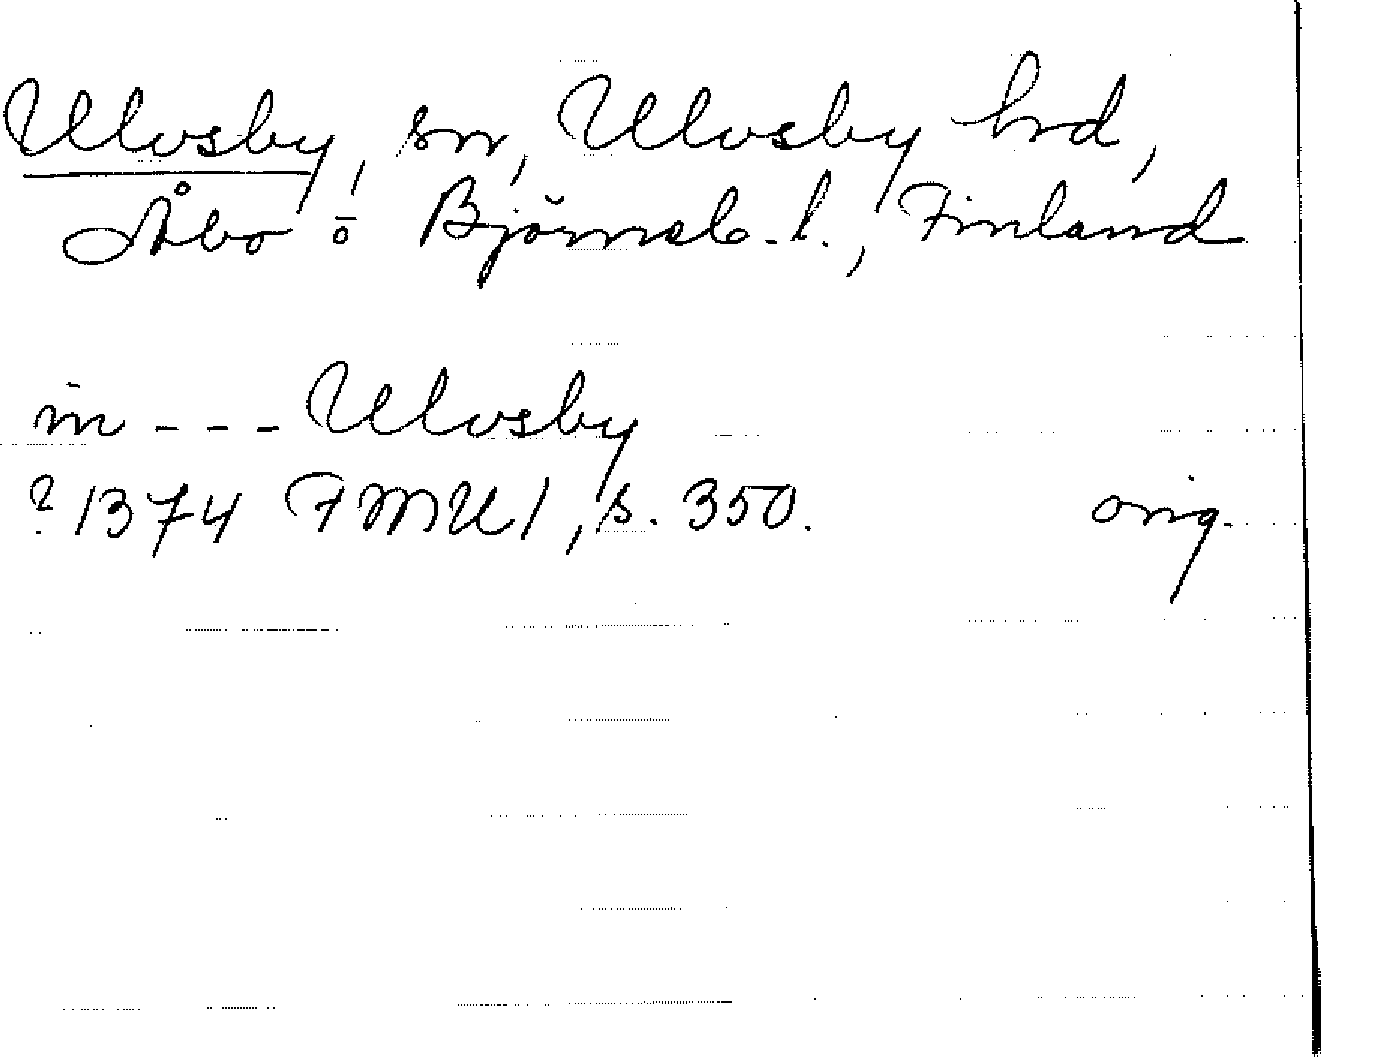 Ulvsby, sn, Ulvsby hrd,
Åbo o Björneb. l., Finland
in --- Ulvsby
? 1374 FMU 1, s. 350. orig.